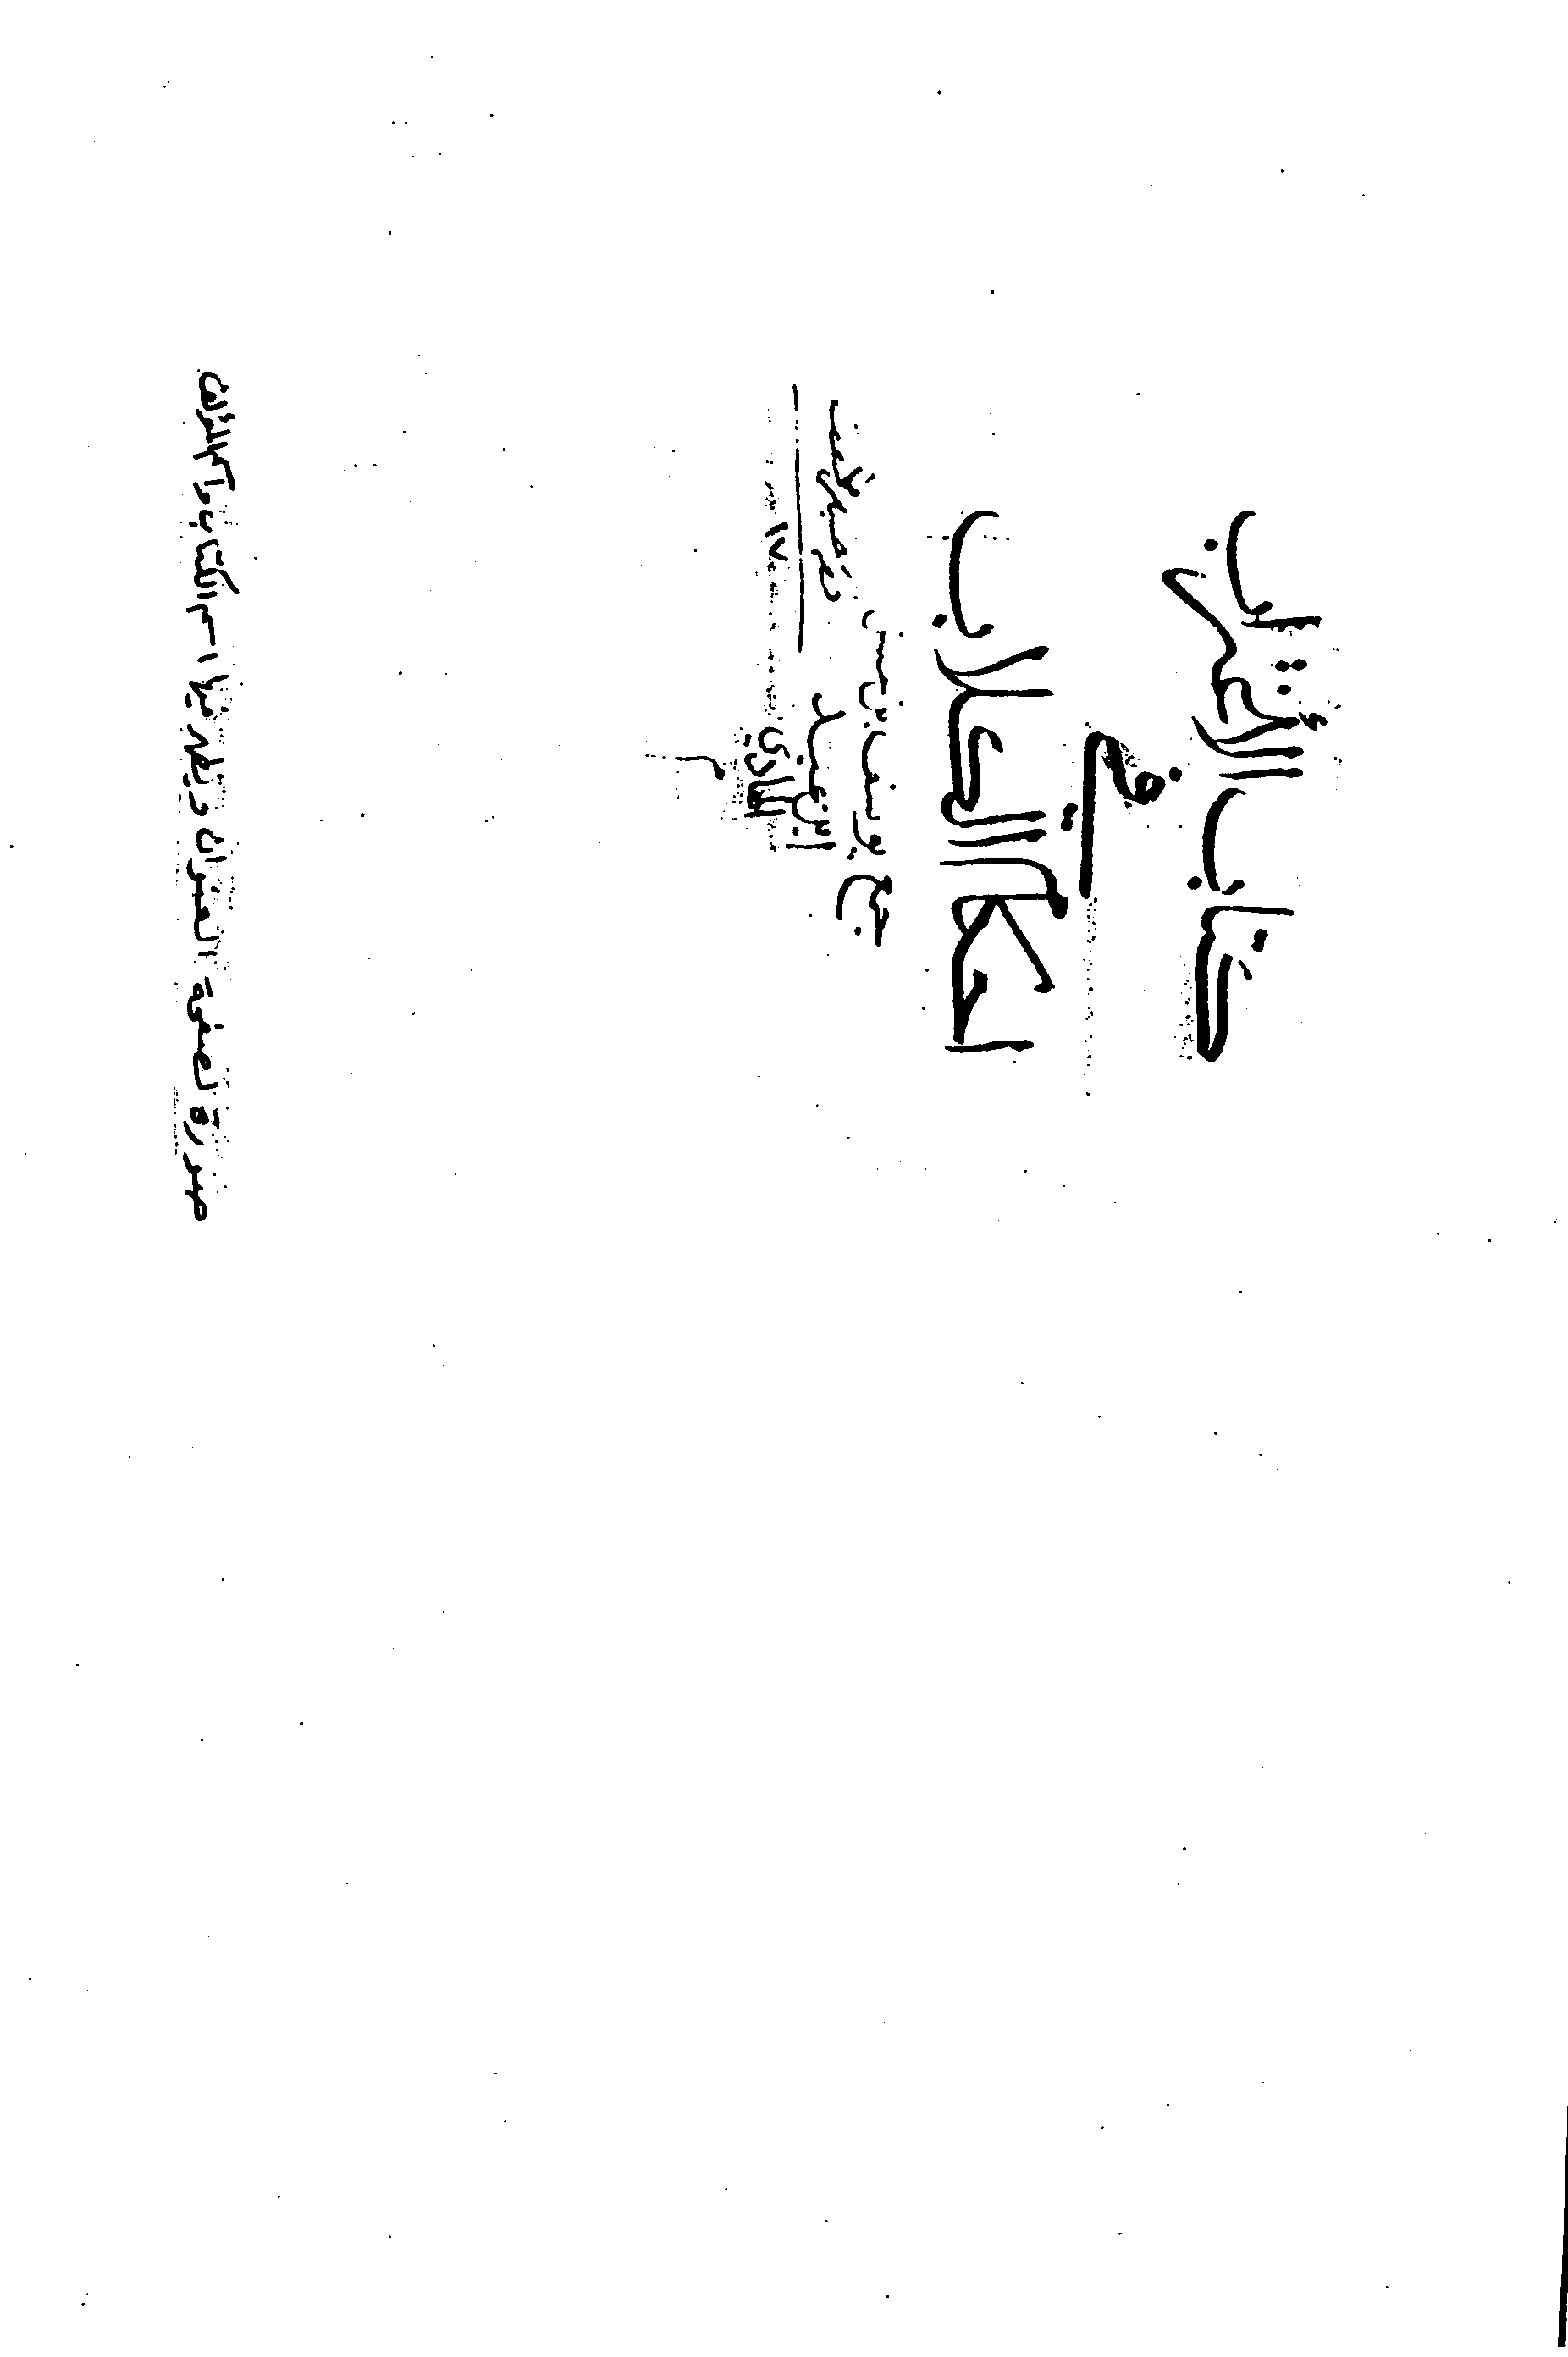 كتاب الإغراب
في
احكام الكلاب
جمع يوسف بن حسن
ابن عبد
الهادي
١٧
صورة لصفحة العنوان ويظهر فيها اسم الكتاب واسم المؤلف